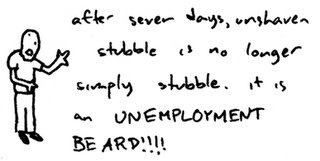 after seven days, unshaven
stubble is no longer
simply stubble. it is
an UNEMPLOYMENT
BEARD!!!!